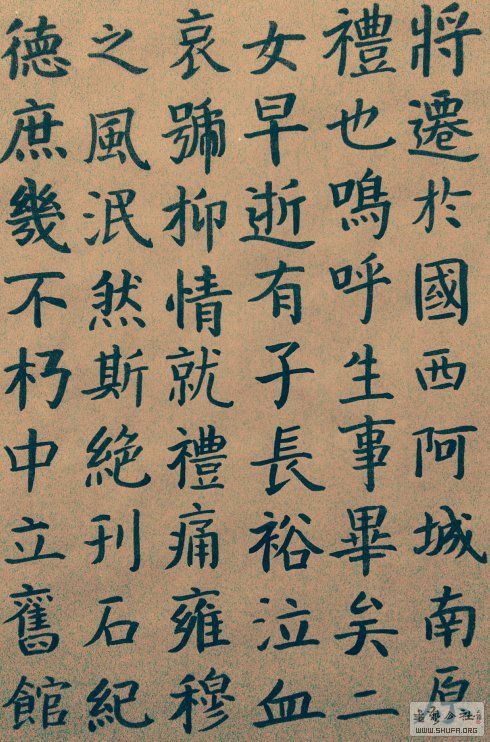 將遷於國西阿城南原
禮也鳴呼生事畢矣二
女早逝有子長裕泣血
哀號抑情就禮痛雍穆
之風泯然斯絶刊石紀
德庶幾不朽中立舊館
WWW.SHUFA.ORG